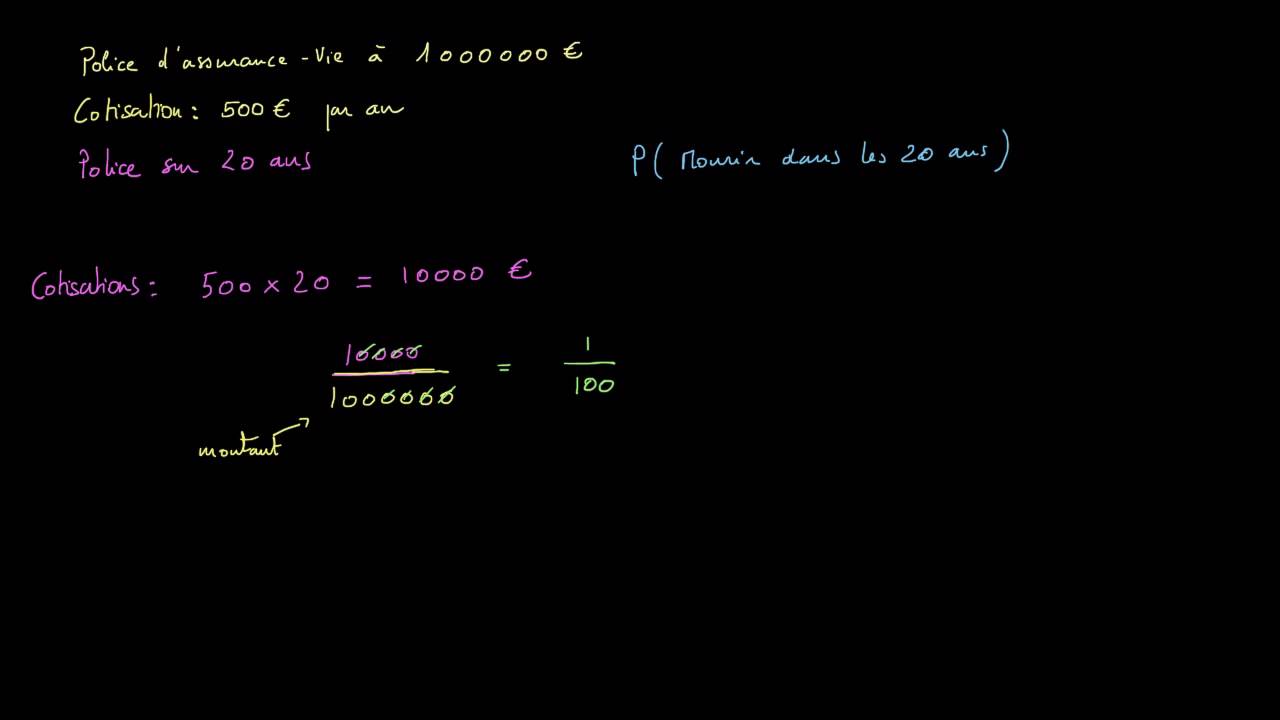 Police d'assurance-Vie à 1000000 €
Cotisation: 500 € par an
Police sur 20 ans
P( Mourir dans les 20 ans )
Cotisations: 500 × 20 = 10000 €
10000 / 1000000 = 1 / 100
montant